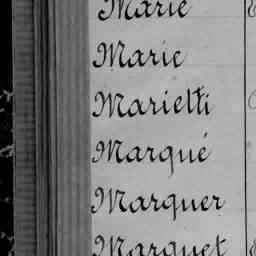 Marie
Marie
Marietti
Marqué
Marquer
Marquet